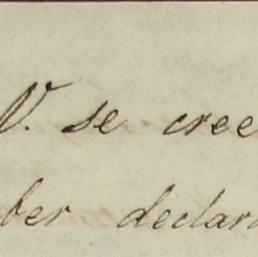 V. se cree
ber declara